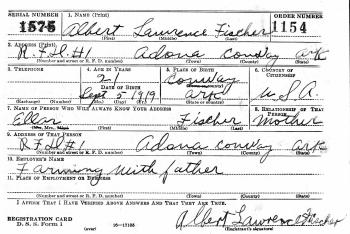 SERIAL NUMBER 1. NAME (Print) ORDER NUMBER
1575 Albert Lawrence Fischer 1154
(First) (Middle) (Last)
2. ADDRESS (Print)
R F D #1 Adona Conway Ark
(Number and street or R. F. D. number) (Town) (County) (State)
3. TELEPHONE 4. AGE IN YEARS 5. PLACE OF BIRTH 6. COUNTRY OF CITIZENSHIP
21 Conway
DATE OF BIRTH (Town or county)
Sept 5 1919 Ark U.S.A.
(Exchange) (Number) (Mo.) (Day) (Yr.) (State or country)
7. NAME OF PERSON WHO WILL ALWAYS KNOW YOUR ADDRESS 8. RELATIONSHIP OF THAT PERSON
Ellar Fischer Mother
(Mr., Mrs., Miss) (First) (Middle) (Last)
9. ADDRESS OF THAT PERSON
R F D #1 Adona Conway Ark
(Number and street or R. F. D. number) (Town) (County) (State)
10. EMPLOYER'S NAME
Farming with father
11. PLACE OF EMPLOYMENT OR BUSINESS
(Number and street or R. F. D. number) (Town) (County) (State)
I AFFIRM THAT I HAVE VERIFIED ABOVE ANSWERS AND THAT THEY ARE TRUE.
REGISTRATION CARD
D. S. S. Form 1 (over) Albert Lawrence Fischer
(Registrant's signature)